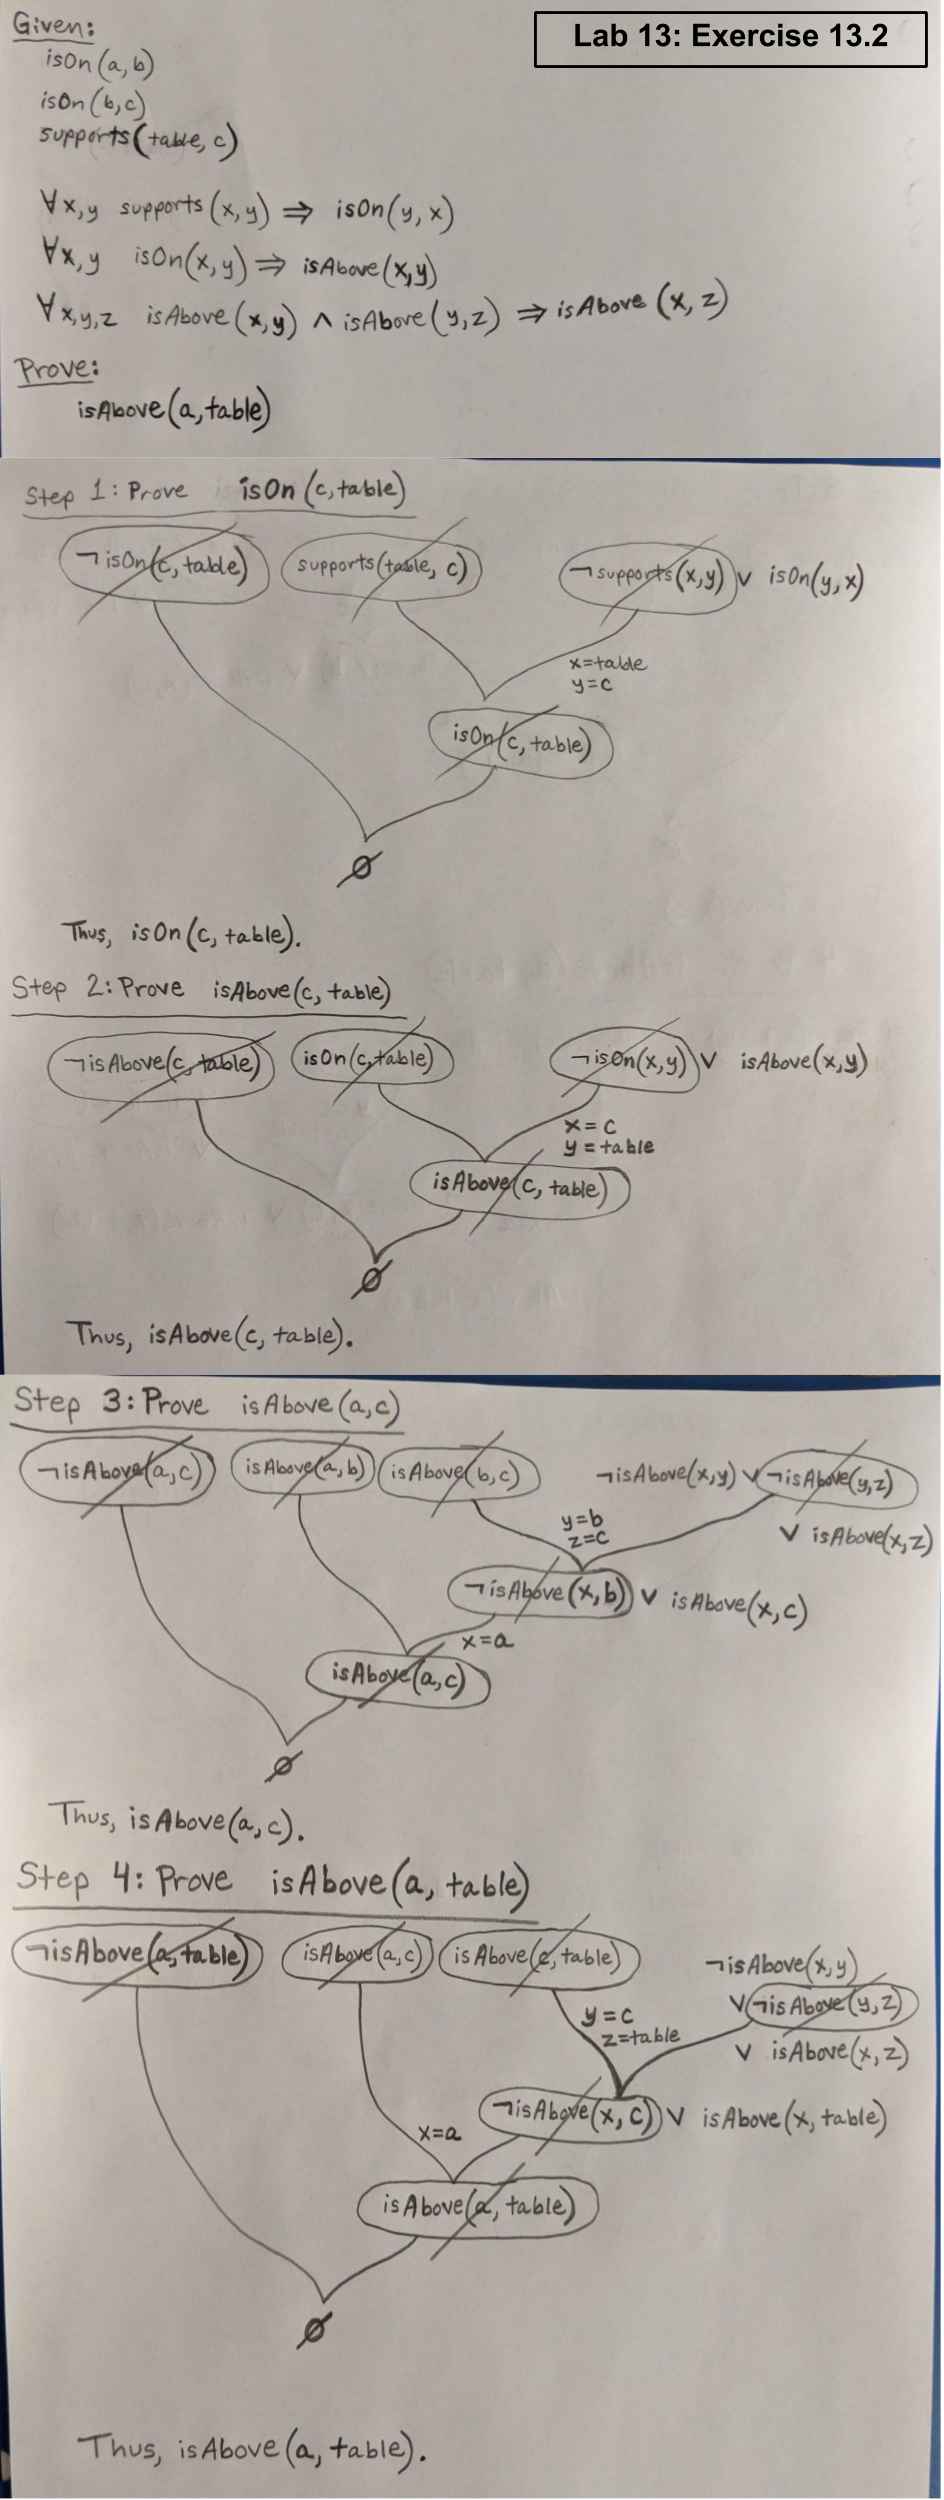 Lab 13: Exercise 13.2
Given:
isOn(a,b)
isOn(b,c)
supports(table, c)
∀x,y supports(x,y) ⇒ isOn(y,x)
∀x,y isOn(x,y) ⇒ isAbove(x,y)
∀x,y,z isAbove(x,y) ∧ isAbove(y,z) ⇒ isAbove(x,z)
Prove:
isAbove(a,table)
Step 1: Prove isOn(c,table)
¬isOn(c,table) supports(table, c) ¬supports(x,y) ∨ isOn(y,x)
x=table
y=c
isOn(c,table)
∅
Thus, isOn(c, table).
Step 2: Prove isAbove(c, table)
¬isAbove(c,table) isOn(c,table) ¬isOn(x,y) ∨ isAbove(x,y)
x=c
y=table
isAbove(c, table)
∅
Thus, isAbove(c, table).
Step 3: Prove isAbove(a,c)
¬isAbove(a,c) isAbove(a,b) isAbove(b,c) ¬isAbove(x,y) ∨ ¬isAbove(y,z)
∨ isAbove(x,z)
y=b
z=c
¬isAbove(x,b) ∨ isAbove(x,c)
x=a
isAbove(a,c)
∅
Thus, isAbove(a,c).
Step 4: Prove isAbove(a, table)
¬isAbove(a,table) isAbove(a,c) isAbove(c,table) ¬isAbove(x,y)
∨ ¬isAbove(y,z)
∨ isAbove(x,z)
y=c
z=table
¬isAbove(x,c) ∨ isAbove(x,table)
x=a
isAbove(a, table)
∅
Thus, isAbove(a, table).